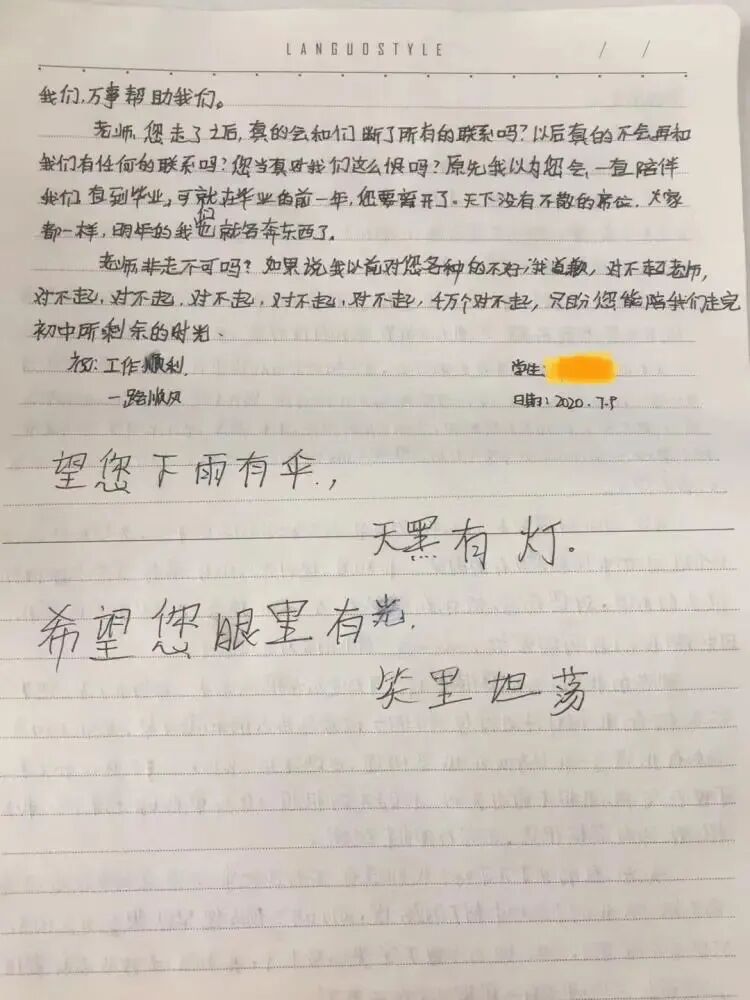 LANGUOSTYLE / /
我们,万事帮助我们。
老师,您走了之后,真的会和们断了所有的联系吗?以后真的不会再和
我们有任何的联系吗?您当真对我们这么恨吗?原先我以为您会,一直陪伴
我们直到毕业,可就在毕业的前一年,您要离开了。天下没有不散的席位,大家
都一样,明年的我们也就各奔东西了。
老师非走不可吗?如果说我以前对您各种的不好,我道歉,对不起老师,
对不起,对不起,对不起,对不起,对不起,千万个对不起,只盼您能陪我们走完
初中所剩余的时光、
祝:工作顺利, 学生:
一路顺风 日期:2020.7.9
望您下雨有伞,
天黑有灯.
希望您眼里有光,
笑里坦荡